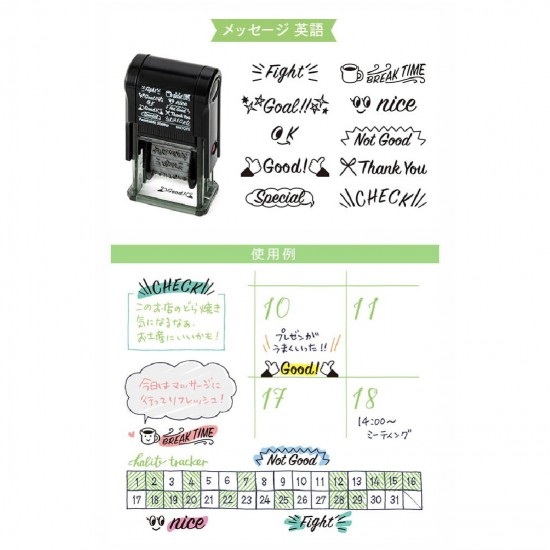 メッセージ 英語
Fight
BREAK TIME
Goal!!
nice
OK
Not Good
Good!
Thank You
Special
CHECK!
Good!
使用例
CHECK!
このお店のどら焼き
気になるなぁ。
お土産にいいかも！
10
11
プレゼンが
うまくいった!!
Good!
今日はマッサージに
行ってリフレッシュ！
17
18
14:00～
ミーティング
BREAK TIME
habit tracker
Not Good
1 2 3 4 5 6 7 8 9 10 11 12 13 14 15 16
17 18 19 20 21 22 23 24 25 26 27 28 29 30 31
nice
Fight